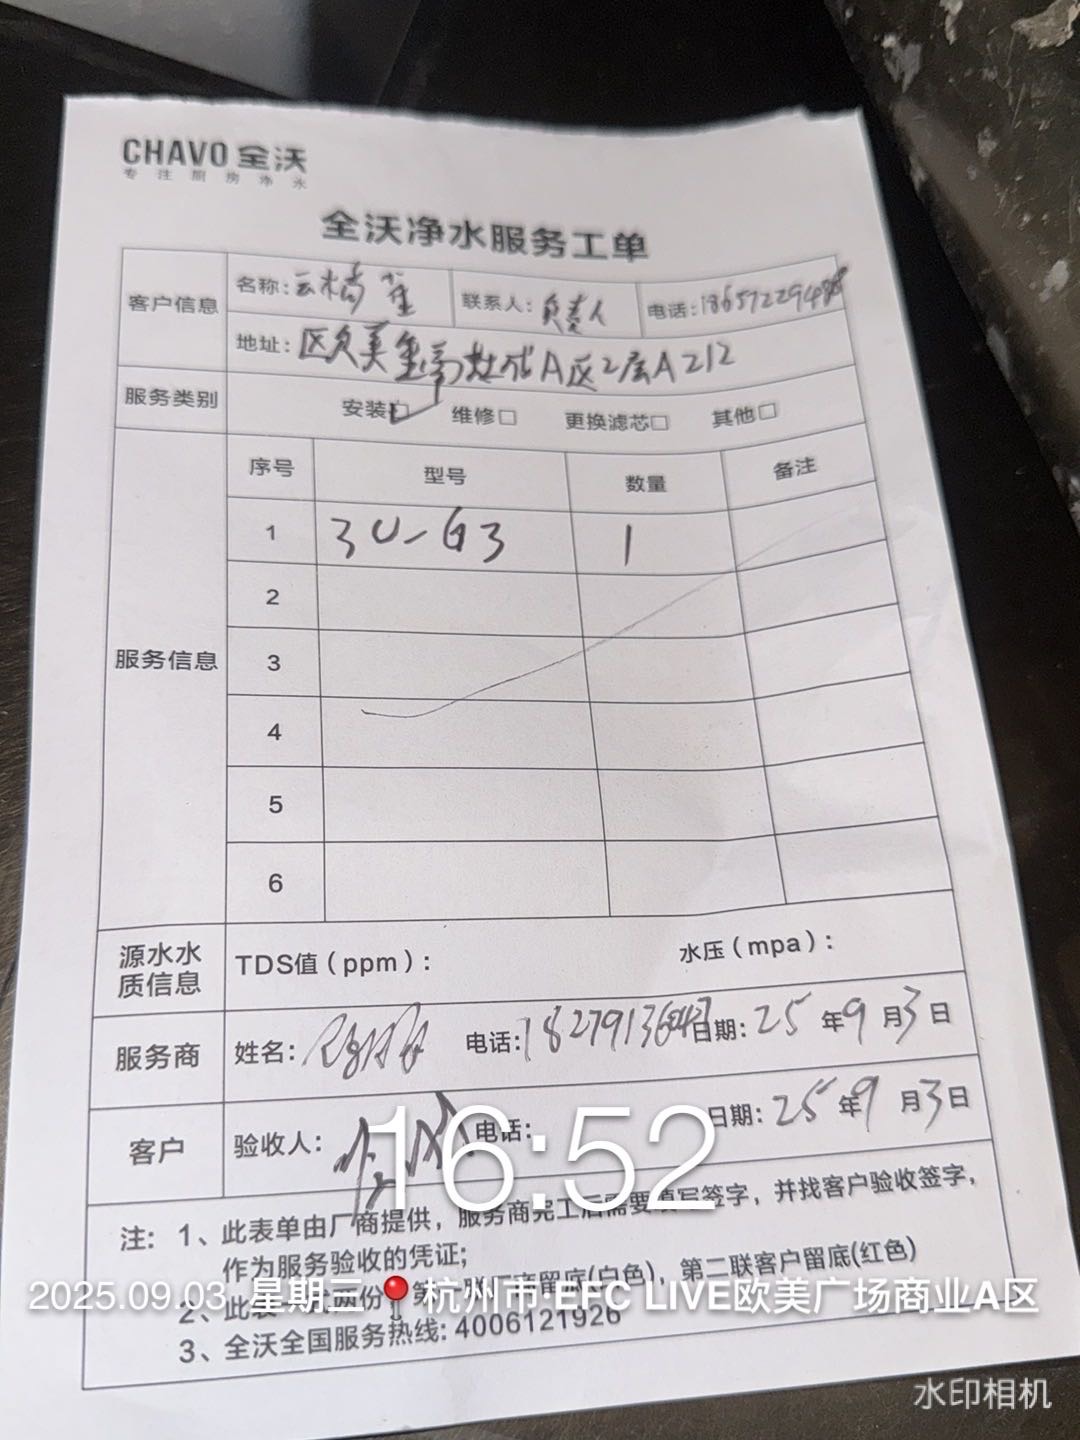 CHAVO 全沃
专注厨房净水
全沃净水服务工单
客户信息 名称: 联系人: 负责人 电话: 186572294
地址: 区2层A212
服务类别 安装☑ 维修□ 更换滤芯□ 其他□
服务信息 序号 型号 数量 备注
1 3U-G3 1
2
3
4
5
6
源水水质信息 TDS值(ppm): 水压(mpa):
服务商 姓名: 电话: 日期: 25年9月3日
客户 验收人: 电话: 日期: 25年9月3日
16:52
注: 1、此表单由厂商提供，服务商完工后需要填写签字，并找客户验收签字，
作为服务验收的凭证;
2、此表一式两份，第一联厂商留底(白色)，第二联客户留底(红色)
2025.09.03 星期三 杭州市·EFC LIVE欧美广场商业A区
3、全沃全国服务热线: 4006121926
水印相机